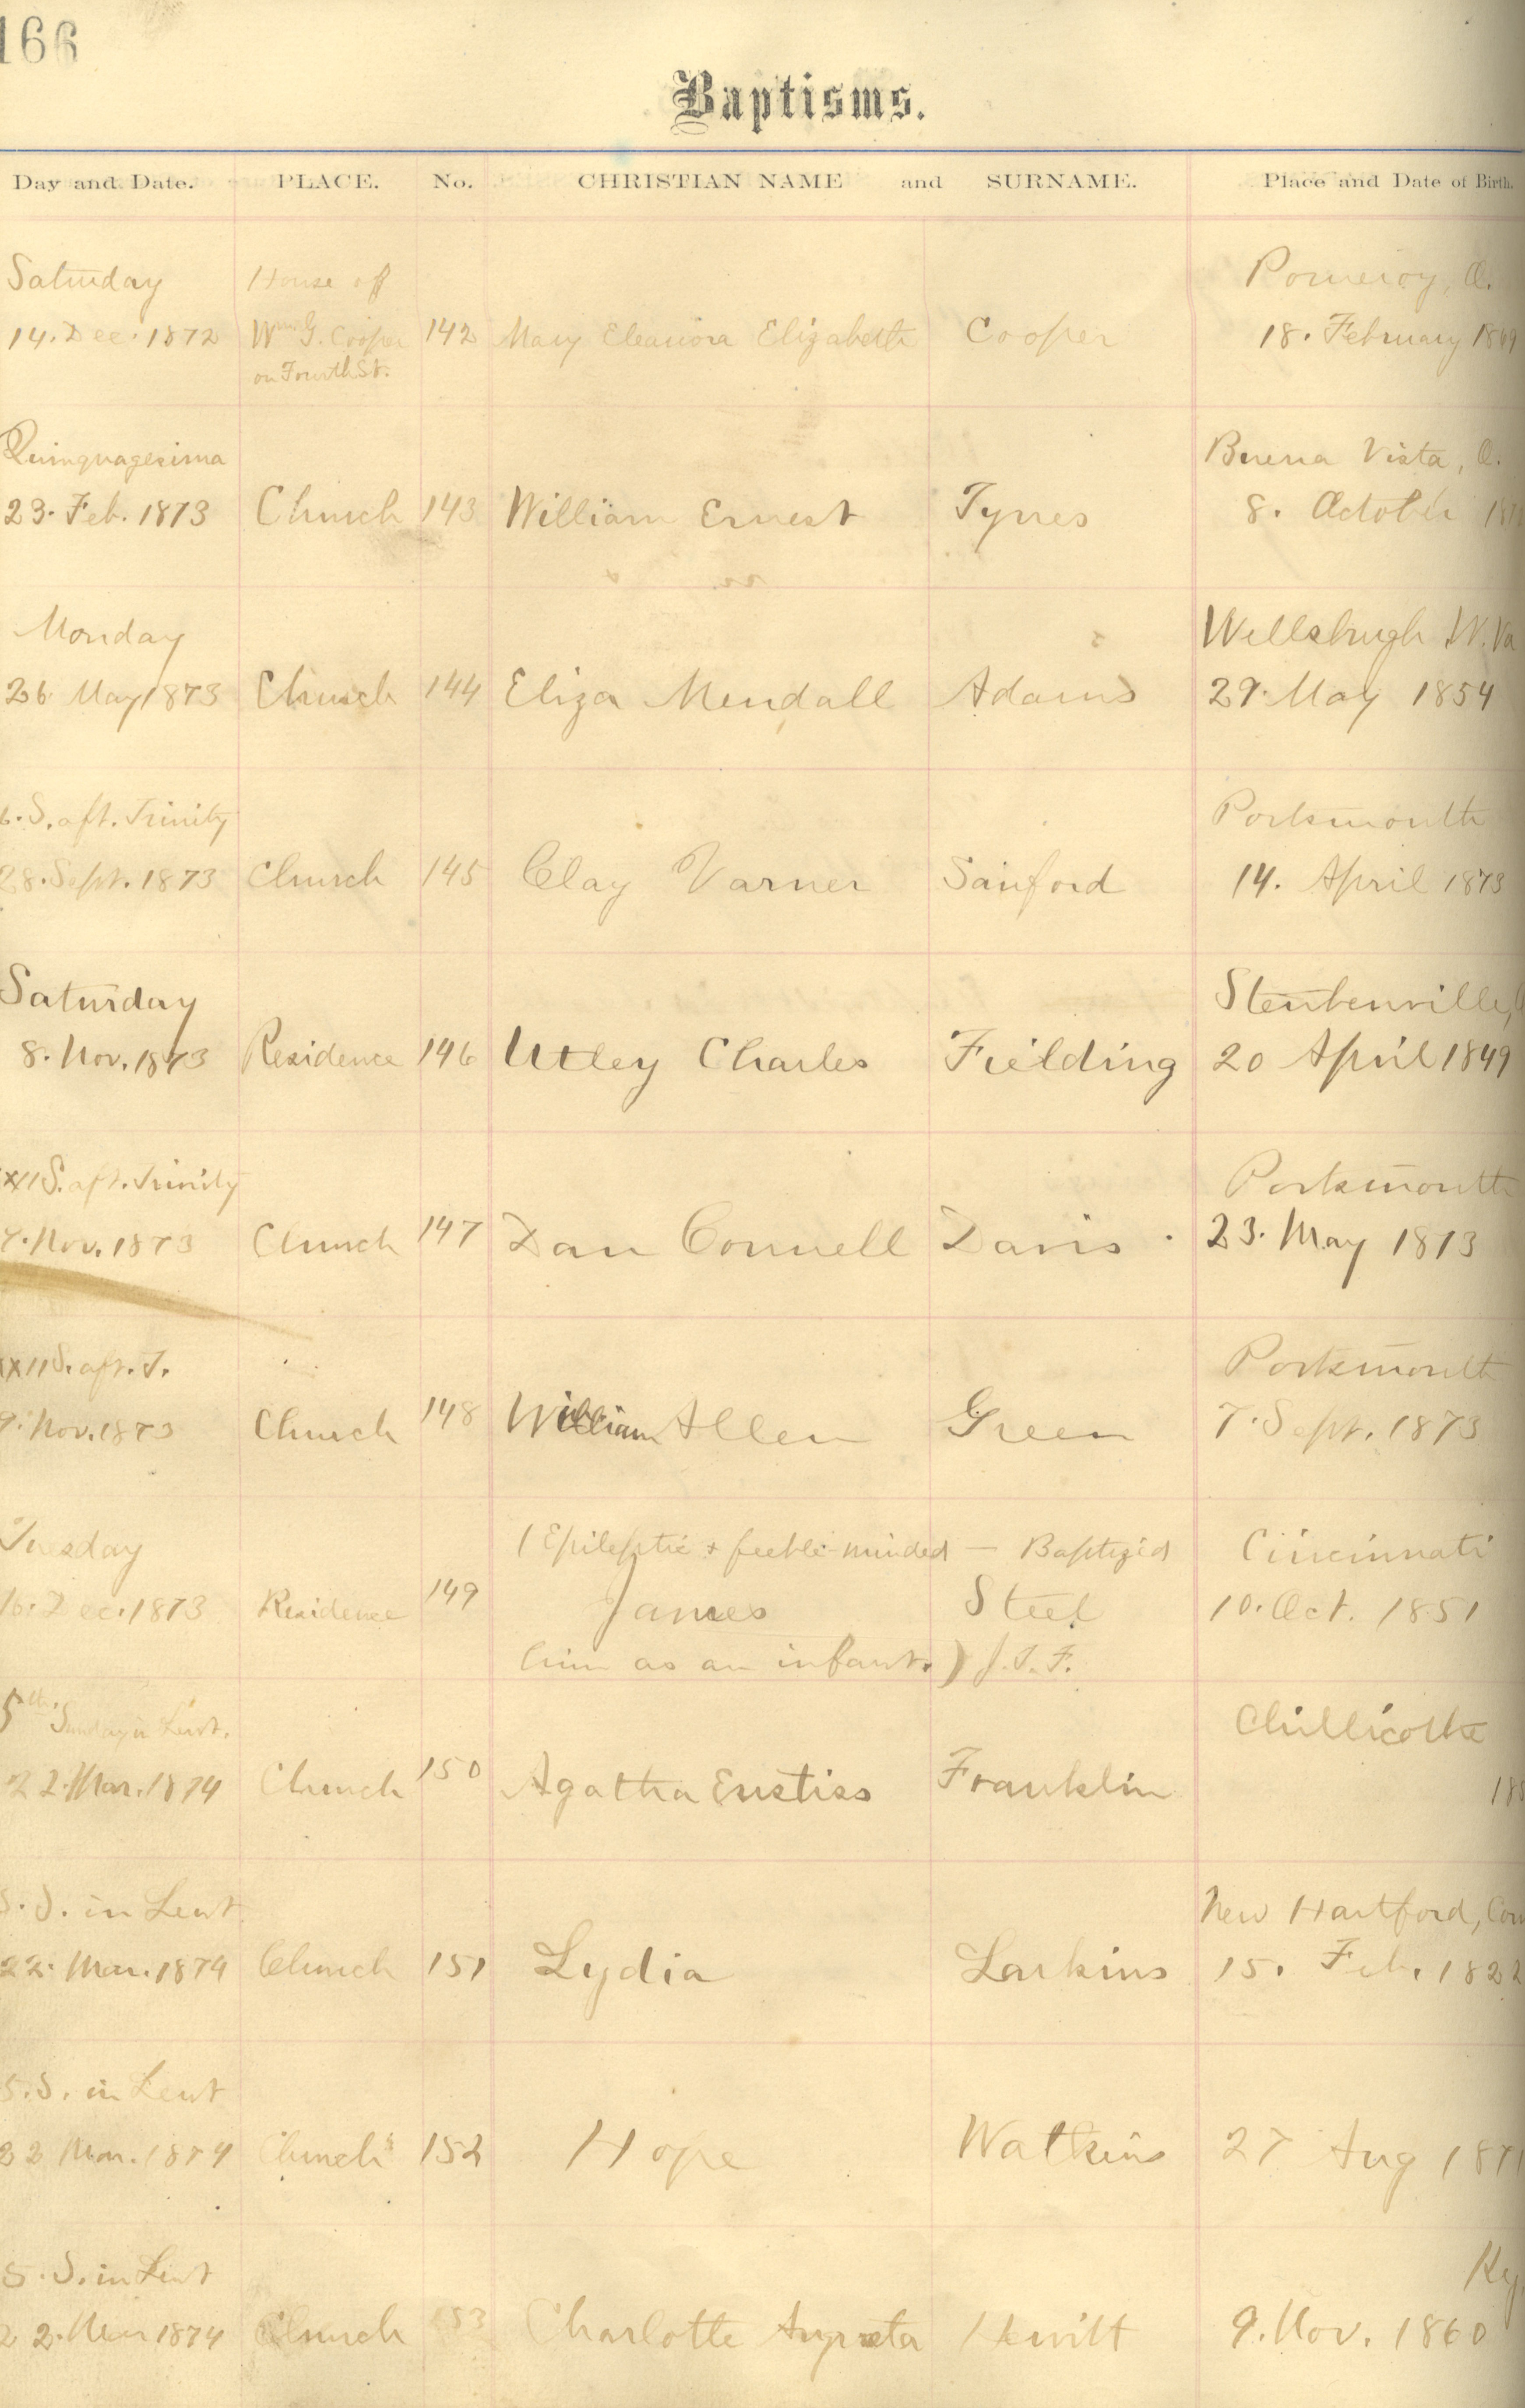 166
Baptisms.
Day and Date. PLACE. No. CHRISTIAN NAME and SURNAME. Place and Date of Birth.
Saturday House of Pomeroy, O.
14. Dec. 1872 Wm G. Cooper 142 Mary Eleanora Elizabeth Cooper 18. February 1869
on Fourth St.
Quinquagesima Buena Vista, O.
23. Feb. 1873 Church 143 William Ernest Tynes 8. October
Monday Wellsburgh W. Va
26 May 1873 Church 144 Eliza Mendall Adams 29. May 1854
6. S. aft. Trinity Portsmouth
28. Sept. 1873 Church 145 Clay Varner Sanford 14. April 1873
Saturday Steubenville,
8. Nov. 1873 Residence 146 Utley Charles Fielding 20 April 1849
XII S. aft. Trinity Portsmouth
Nov. 1873 Church 147 Dan Connell Davis 23. May 1873
XXII S. aft. T. Portsmouth
9. Nov. 1873 Church 148 William Allen Green 7. Sept. 1873
Tuesday (Epileptic + feeble-minded — Baptized Cincinnati
16. Dec. 1873 Residence 149 James Steel 10. Oct. 1851
him as an infant.) J.T.F.
5th Sunday in Lent. Chillicothe
22. Mar. 1874 Church 150 Agatha Eustiss Franklin 18
5. S. in Lent New Hartford, Con
22. Mar. 1874 Church 151 Lydia Larkins 15. Feb. 1822
5. S. in Lent
22 Mar. 1874 Church 152 Hope Watkins 27 Aug 1871
5. S. in Lent Ky
22. Mar 1874 Church 153 Charlotte Augusta Hewitt 9. Nov. 1860